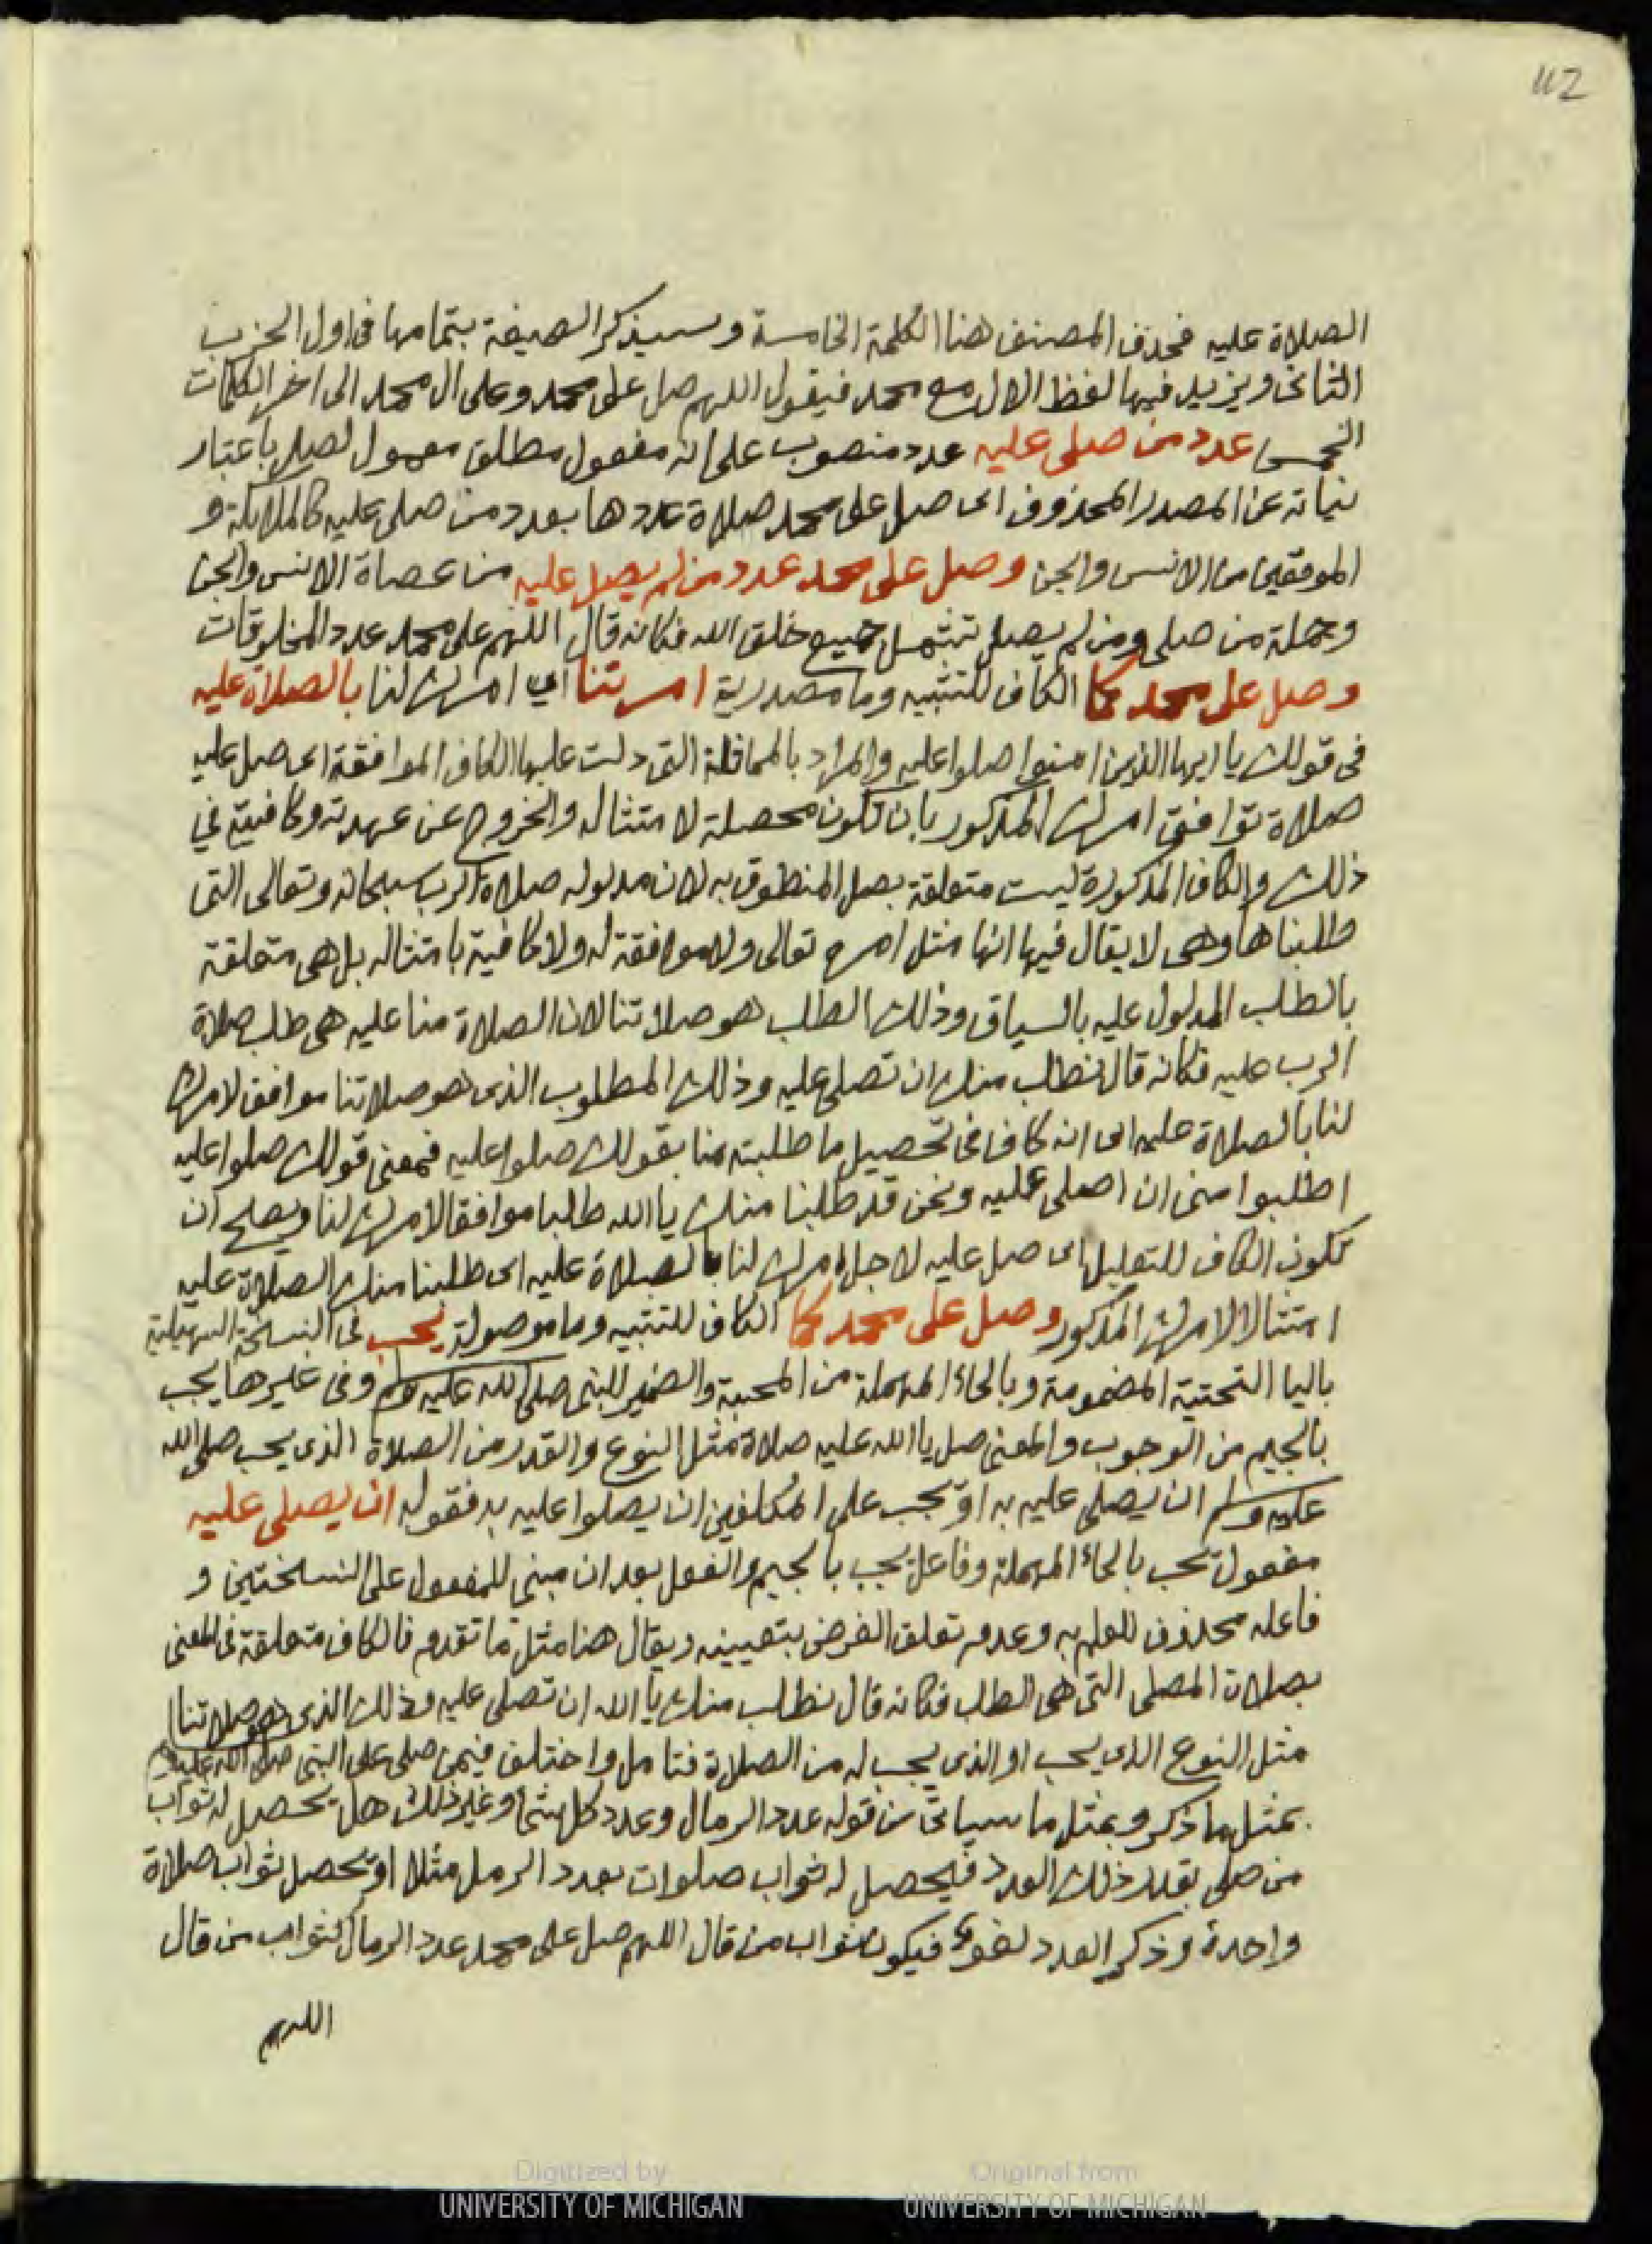 112
الصلاة عليه فحذف المصنف هنا الكلمة الخامسة وسيذكر الصيغة بتمامها في اول الحزب
الثاني ويزيد فيها لفظ الال مع محمد فيقول اللهم صل على محمد وعلى ال محمد الى اخر الكلمات
الخمس عدد من صلى عليه عدد منصوب على انه مفعول مطلق معمول لصل باعتبار
نيابته عن المصدر المحذوف اى صل على محمد صلاة عددها بعدد من صلى عليه كالملائكة و
الموفقين من الانس والجن وصل على محمد عدد من لم يصل عليه من عصاة الانس والجن
وجملة من صلى ومن لم يصل تشمل جميع خلق الله فكانه قال اللهم على محمد عدد المخلوقات
وصل على محمد كما الكاف للتشبيه وما مصدرية امرتنا اي امرك لنا بالصلاة عليه
فى قولك يا ايها الذين امنوا صلوا عليه والمراد بالمماثلة التى دلت عليها الكاف الموافقة اى صل عليه
صلاة توافق امرك المذكور بان تكون محصلة لامتثاله والخروج عن عهدته وكافية في
ذلك والكاف المذكورة ليست متعلقة بصل المنطوق به لان مدلوله صلاة الرب سبحانه وتعالى التى
طلبناها وهى لا يقال فيها انها مثل امره تعالى ولا موافقة له ولا كافية بامتثاله بل هى متعلقة
بالطلب المدلول عليه بالسياق وذلك الطلب هو صلاتنا لان الصلاة منا عليه هى طلب صلاة
الرب عليه فكانه قال نطلب منك ان تصلى عليه وذلك المطلوب الذى هو صلاتنا موافق لامرك
لنا بالصلاة عليه اى انه كاف فى تحصيل ما طلبته منا بقولك صلوا عليه فمعنى قولك صلوا عليه
اطلبوا منى ان اصلى عليه ونحن قد طلبنا منك يا الله طلبا موافقا لامرك لنا ويصلح ان
تكون الكاف للتعليل اى صل عليه لاجل امرك لنا بالصلاة عليه اى طلبنا منك الصلاة عليه
امتثالا لامرك المذكور وصل على محمد كما الكاف للتشبيه وما موصولة يحب فى النسخة السهيلية
باليا التحتية المضمومة وبالحاء المهملة من المحبة والضمير للنبى صلى الله عليه وسلم وفى غيرها يجب
بالجيم من الوجوب والمعنى صل يا الله عليه صلاة مثل النوع والقدر من الصلاة الذى يحب صلى الله
عليه وسلم ان يصلى عليه به او يجب على المكلفين ان يصلوا عليه به فقوله ان يصلى عليه
مفعول يحب بالحاء المهملة وفاعل يجب بالجيم والفعل بعد ان مبنى للمفعول على النسختين و
فاعله محذوف للعلم به وعدم تعلق الغرض بتعيينه ويقال هنا مثل ما تقدم فالكاف متعلقة فى المعنى
بصلاة المصلى التى هى الطلب فكانه قال نطلب منك يا الله ان تصلى عليه وذلك الذى هو صلاتنا
مثل النوع الذى يحب او الذى يجب له من الصلاة فتامل واختلف فيمن صلى على النبى صلى الله عليه وسلم
بمثل ما ذكر وبمثل ما سياتى من قوله عدد الرمال وعدد كل شئ وغير ذلك هل يحصل له ثواب
من صلى بقدر ذلك العدد فيحصل له ثواب صلوات بعدد الرمل مثلا او يحصل ثواب صلاة
واحدة وذكر العدد لغوى فيكون ثواب من قال اللهم صل على محمد عدد الرمال كثواب من قال
اللهم
Digitized by UNIVERSITY OF MICHIGAN
Original from UNIVERSITY OF MICHIGAN